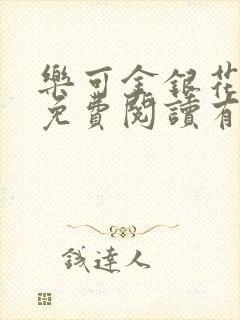 樂可金銀花
免費閱讀有
錢達人